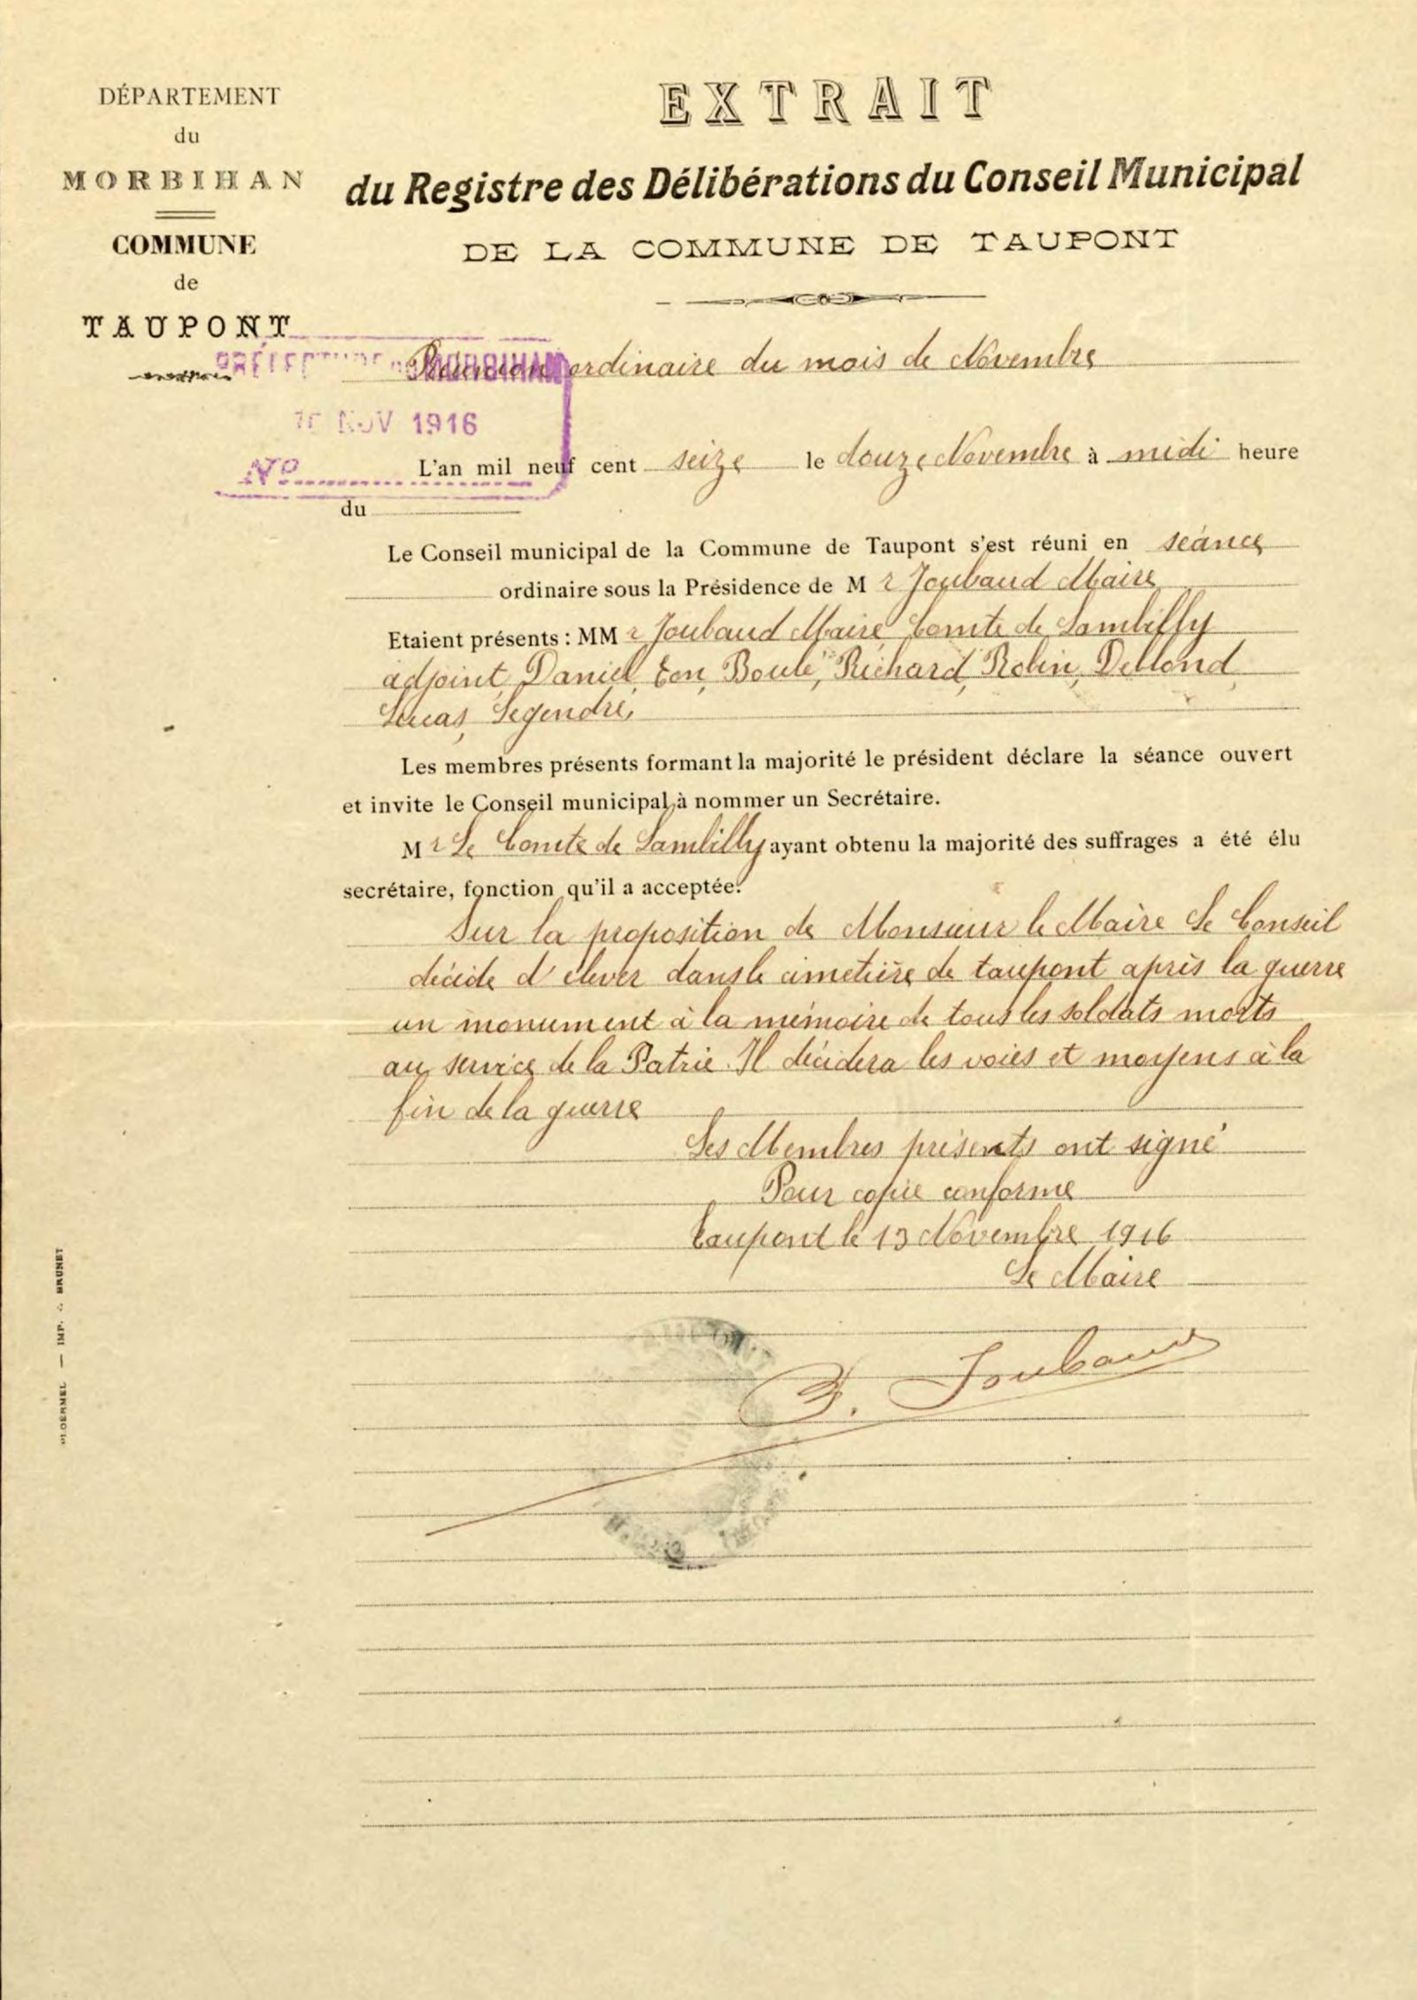 DÉPARTEMENT
du
MORBIHAN
COMMUNE
de
TAUPONT
EXTRAIT
du Registre des Délibérations du Conseil Municipal
DE LA COMMUNE DE TAUPONT
PRÉFECTURE MORBIHAN
NOV 1916
N°
Réunion ordinaire du mois de Novembre
L'an mil neuf cent seize le douze Novembre à midi heure
du
Le Conseil municipal de la Commune de Taupont s'est réuni en séance
ordinaire sous la Présidence de Mr Joubaud Maire
Etaient présents : MMr Joubaud Maire Comte de Lambilly
adjoint, Daniel, Eon, Boulé, Richard, Robin, Dellond
Lucas, Legendre,
Les membres présents formant la majorité le président déclare la séance ouvert
et invite le Conseil municipal à nommer un Secrétaire.
Mr Le Comte de Lambilly ayant obtenu la majorité des suffrages a été élu
secrétaire, fonction qu'il a acceptée.
Sur la proposition de Monsieur le Maire Le Conseil
décide d'élever dans le cimetière de taupont après la guerre
un monument à la mémoire de tous les soldats morts
au service de la Patrie. Il décidera les voies et moyens à la
fin de la guerre
Les Membres présents ont signé
Pour copie conforme
Taupont le 13 Novembre 1916
Le Maire
J. Joubaud
PLOERMEL — IMP. BRUNET